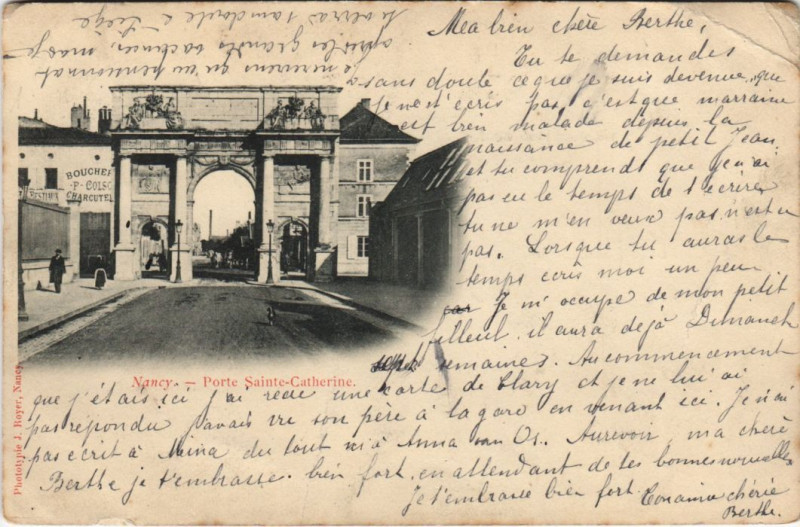 Ma bien chère Berthe,
Tu te demandes
sans doute ce que je suis devenue, que
Je ne t'écris pas, c'est que marraine
est bien malade depuis la
naissance de petit Jean,
et tu comprends que j'ai
pas eu le temps de t'écrire
tu ne m'en veux pas n'est ce
pas. Lorsque tu auras le
temps écris moi un peu
car Je m'occupe de mon petit
filleul, il aura déjà Dimanche
semaines. Au commencement
que j'étais ici j'ai reçu une carte de Clary et je ne lui ai
pas répondu j'avais vu son père à la gare en venant ici. Je n'ai
pas écrit à Mina du tout ni à Anna van Os. Aurevoir, ma chère
Berthe je t'embrasse bien fort, en attendant de tes bonnes nouvelles
Je t'embrasse bien fort. Ton amie chérie
Berthe.
je reviens qu'au pensionnat
après les grandes vacances, mais je
à Liège
BOUCHER
P. COLSO
CHARCUTE
Nancy. — Porte Sainte-Catherine.
Phototypie J. Royer, Nancy